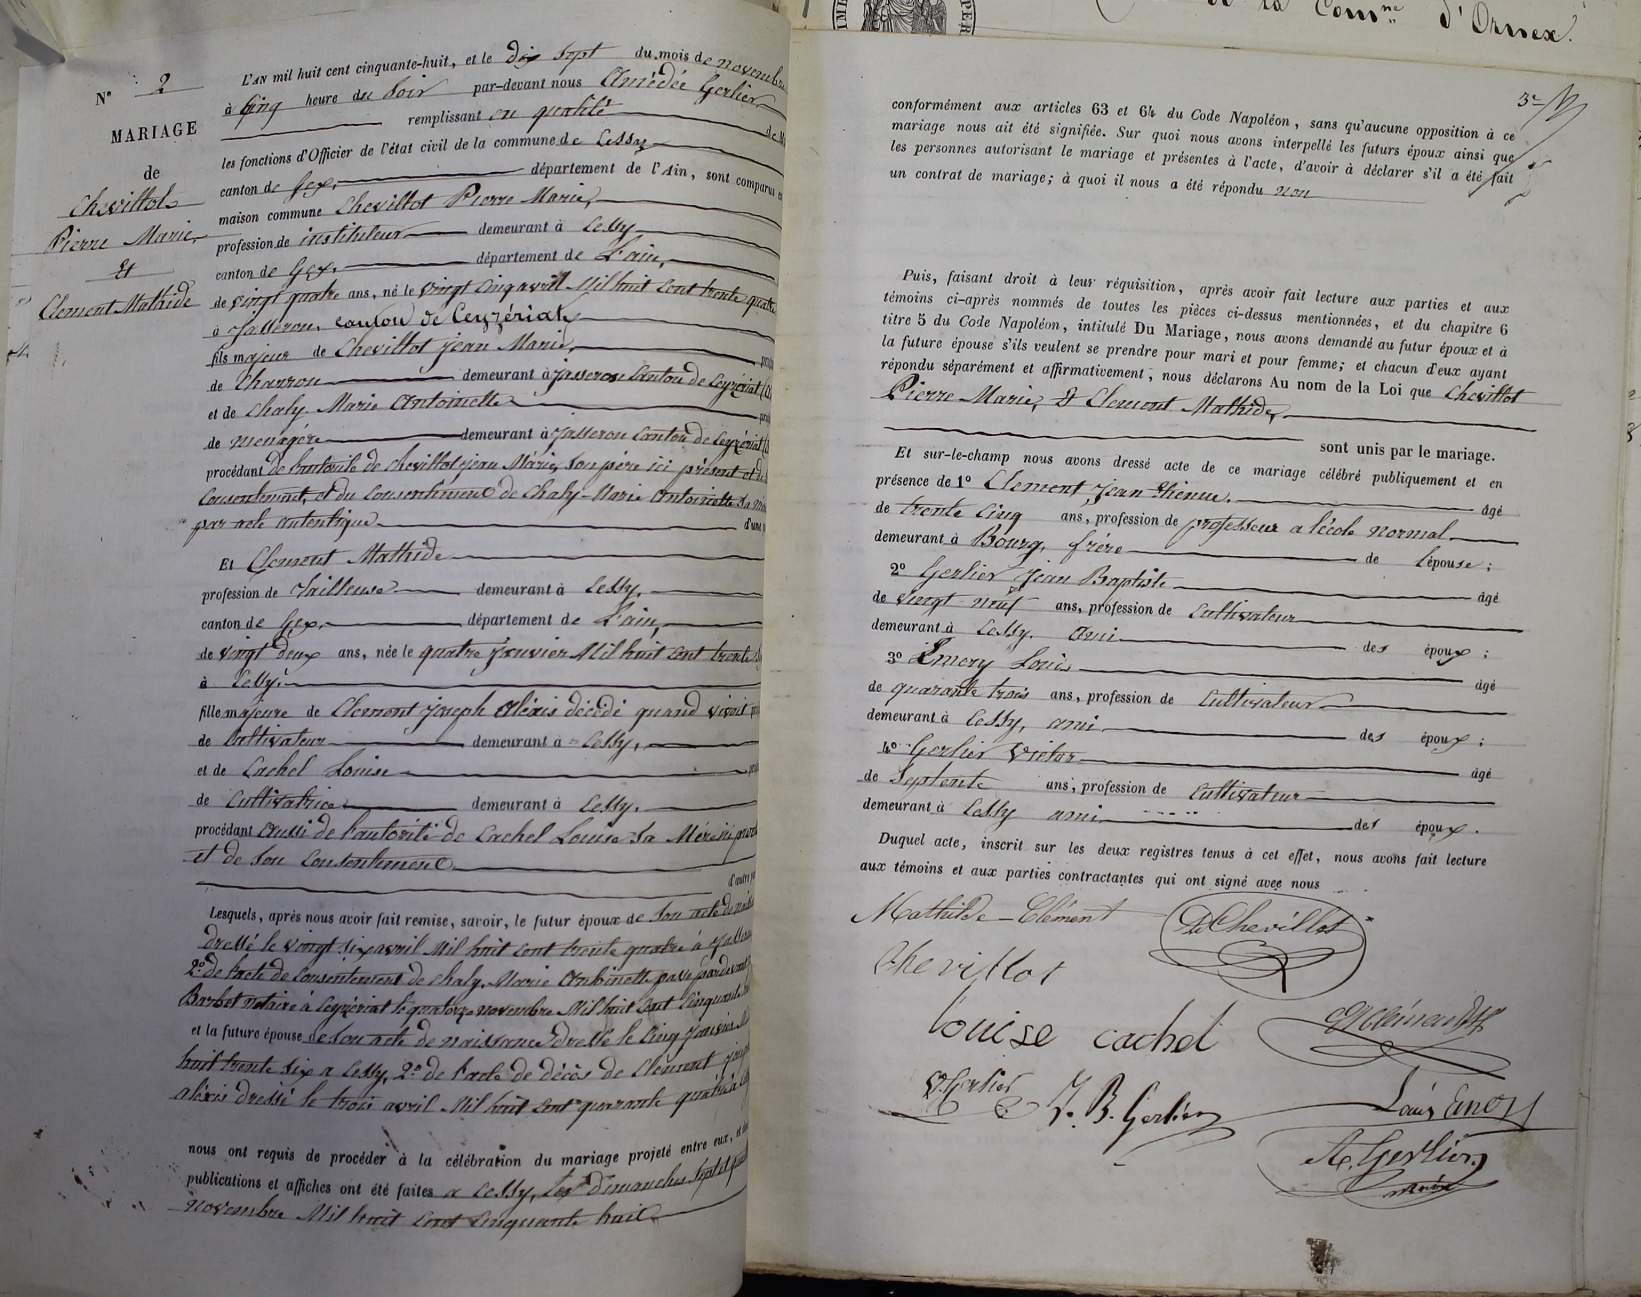 de la Com.ne d'Ornex.
N° 2
MARIAGE
de
Chevillot
Pierre Marie
Et
Clement Mathide
L'AN mil huit cent cinquante-huit, et le dix sept du mois de novembre
à Cinq heure du Soir par-devant nous Amédée Gerlier
remplissant en qualité de M
les fonctions d'Officier de l'état civil de la commune de Cessy
canton de Gex, département de l'Ain, sont comparus en
maison commune Chevillot Pierre Marie,
profession de instituteur demeurant à Cessy
canton de Gex, département de L'ain,
de vingt quatre ans, né le vingt cinq avril Mil huit Cent trente quatre
à Jasseron, canton de Ceyzériat,
fils majeur de Chevillot Jean Marie,
de Charron demeurant à Jasseron Canton de Ceyzériat
et de Chaly Marie Antoinette
de menagére demeurant à Jasseron Canton de Ceyzériat
procédant de l'autorité de Chevillot jean Marie, Son père ici présent et de
Consentement, et du Consentement de Chaly Marie Antoinette Sa
par acte autentique d'une
Et Clement Mathide
profession de Tailleuse demeurant à Cessy,
canton de Gex, département de L'ain,
de vingt deux ans, née le quatre Janvier Mil huit Cent trente
à Cessy,
fille majeure de Clement Joseph Alexis décédé quand vivoit
de Cultivateur demeurant à Cessy,
et de Cachel Louise
de Cultivatrice demeurant à Cessy,
procédant aussi de l'autorité de Cachel Louise Sa Mére ici
et de Son Consentement
d'autre
Lesquels, après nous avoir fait remise, savoir, le futur époux de Son acte de
dressé le vingt six avril Mil huit Cent trente quatre à
2° de l'acte de Consentement de Chaly Marie Antoinette passé pardevant
Barbet notaire à Ceyzériat le quatorze novembre Mil huit Cent Cinquante
et la future épouse de Son acte de naissance dressé le Cinq Janvier Mil
huit trente Six a Cessy, 2° de l'acte de décès de Clement
aléxis dressé le trois avril Mil huit Cent quarante quatre à
nous ont requis de procéder à la célébration du mariage projeté entre eux, et
publications et affiches ont été faites a Cessy, les Dimanches Sept et
novembre Mil huit Cent Cinquante huit
3
conformément aux articles 63 et 64 du Code Napoléon, sans qu'aucune opposition à ce
mariage nous ait été signifiée. Sur quoi nous avons interpellé les futurs époux ainsi que
les personnes autorisant le mariage et présentes à l'acte, d'avoir à déclarer s'il a été fait
un contrat de mariage; à quoi il nous a été répondu non
Puis, faisant droit à leur réquisition, après avoir fait lecture aux parties et aux
témoins ci-après nommés de toutes les pièces ci-dessus mentionnées, et du chapitre 6
titre 5 du Code Napoléon, intitulé Du Mariage, nous avons demandé au futur époux et à
la future épouse s'ils veulent se prendre pour mari et pour femme; et chacun d'eux ayant
répondu séparément et affirmativement, nous déclarons Au nom de la Loi que Chevillot
Pierre Marie, & Clement Mathide,
sont unis par le mariage.
Et sur-le-champ nous avons dressé acte de ce mariage célébré publiquement et en
présence de 1° Clement Jean Etienne. âgé
de trente cinq ans, profession de professeur a l'école normal
demeurant à Bourg, frére de l'épouse;
2° Gerlier Jean Baptiste âgé
de vingt neuf ans, profession de Cultivateur
demeurant à Cessy. ami des époux;
3° Emery Louis âgé
de quarante trois ans, profession de Cultivateur
demeurant à Cessy, ami des époux;
4° Gerlier Victor âgé
de Septente ans, profession de Cultivateur
demeurant à Cessy ami des époux.
Duquel acte, inscrit sur les deux registres tenus à cet effet, nous avons fait lecture
aux témoins et aux parties contractantes qui ont signé avec nous
Mathilde Clément Chevillot
Chevillot
Louise Cachel Clément
V. Gerlier J. B. Gerlier Louis Emery
A. Gerlier
maire